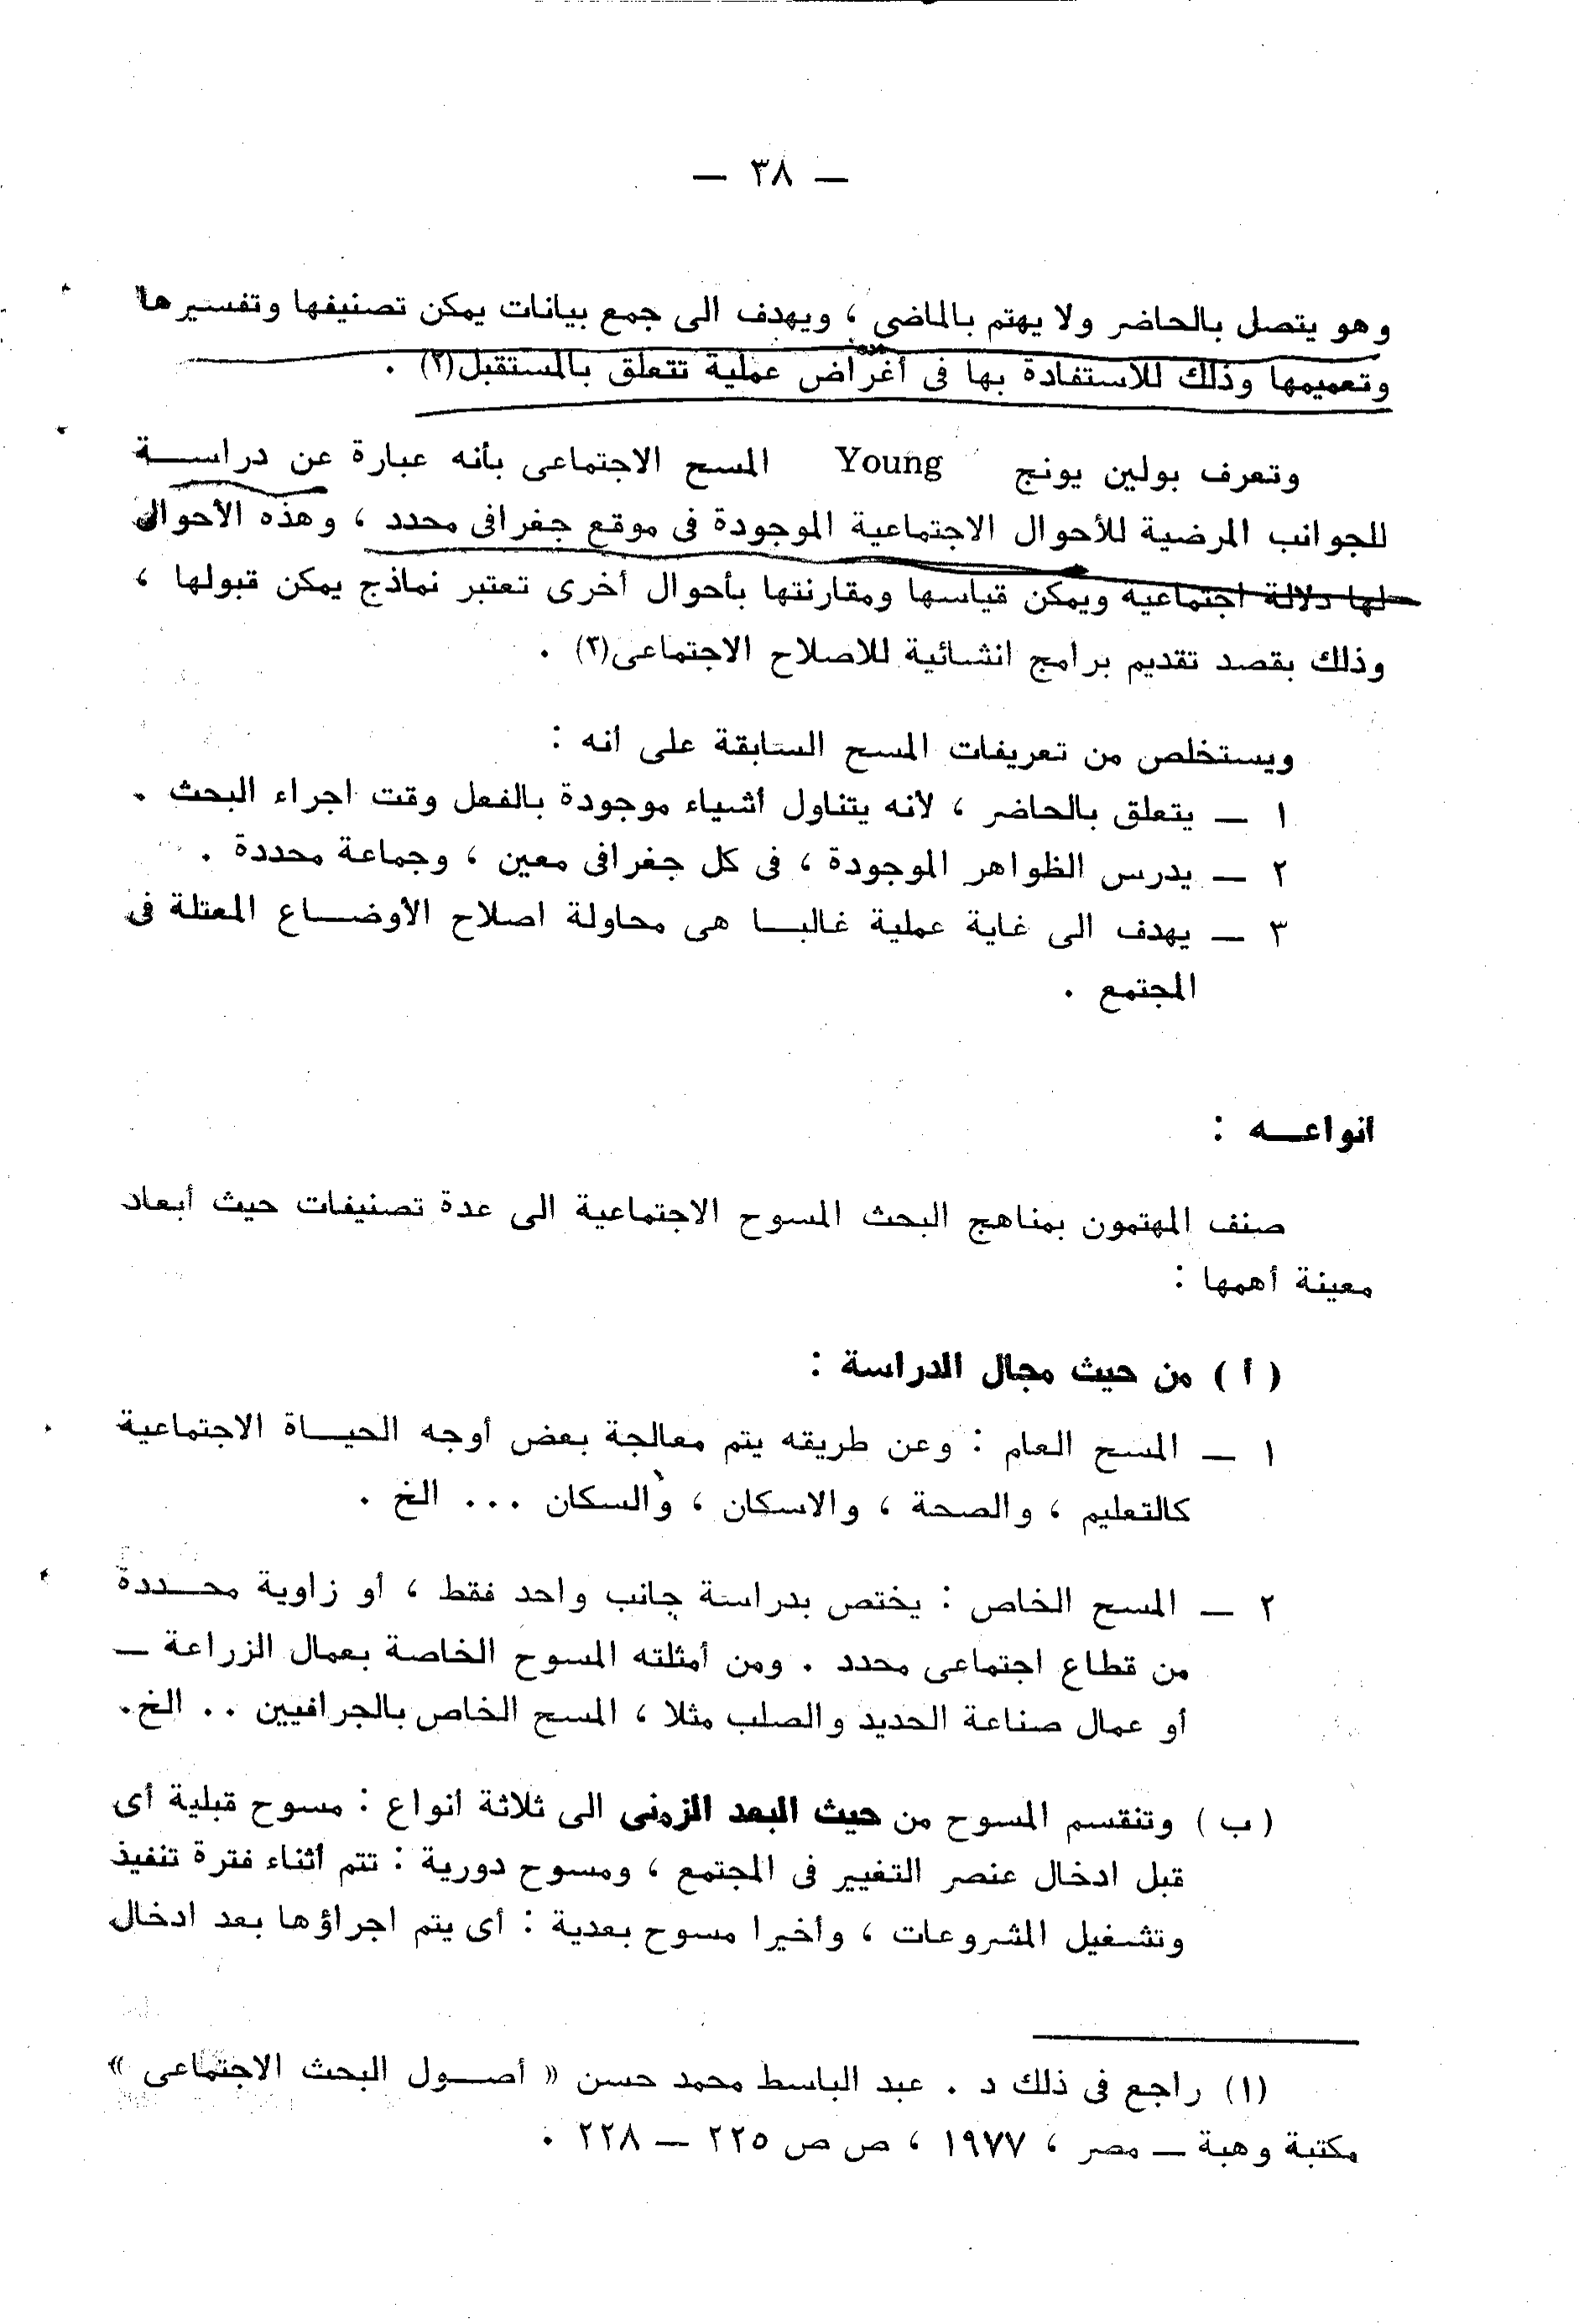 — ٣٨ —
وهو يتصل بالحاضر ولا يهتم بالماضى ، ويهدف الى جمع بيانات يمكن تصنيفها وتفسيرها
وتعميمها وذلك للاستفادة بها فى أغراض عملية تتعلق بالمستقبل(٢) .
وتعرف بولين يونج Young المسح الاجتماعى بأنه عبارة عن دراســة
للجوانب المرضية للأحوال الاجتماعية الموجودة فى موقع جغرافى محدد ، وهذه الأحوال
لها دلالة اجتماعية ويمكن قياسها ومقارنتها بأحوال أخرى تعتبر نماذج يمكن قبولها ،
وذلك بقصد تقديم برامج انشائية للاصلاح الاجتماعى(٣) .
ويستخلص من تعريفات المسح السابقة على أنه :
١ — يتعلق بالحاضر ، لأنه يتناول أشياء موجودة بالفعل وقت اجراء البحث .
٢ — يدرس الظواهر الموجودة ، فى كل جغرافى معين ، وجماعة محددة .
٣ — يهدف الى غاية عملية غالبــا هى محاولة اصلاح الأوضــاع المعتلة فى
المجتمع .
أنواعــه :
صنف المهتمون بمناهج البحث المسوح الاجتماعية الى عدة تصنيفات حيث أبعاد
معينة أهمها :
( أ ) من حيث مجال الدراسة :
١ — المسح العام : وعن طريقه يتم معالجة بعض أوجه الحيــاة الاجتماعية
كالتعليم ، والصحة ، والاسكان ، والسكان ... الخ .
٢ — المسح الخاص : يختص بدراسة جانب واحد فقط ، أو زاوية محــددة
من قطاع اجتماعى محدد . ومن أمثلته المسوح الخاصة بعمال الزراعة —
أو عمال صناعة الحديد والصلب مثلا ، المسح الخاص بالجرافيين .. الخ.
( ب ) وتنقسم المسوح من حيث البعد الزمنى الى ثلاثة أنواع : مسوح قبلية أى
قبل ادخال عنصر التغيير فى المجتمع ، ومسوح دورية : تتم أثناء فترة تنفيذ
وتشغيل المشروعات ، وأخيرا مسوح بعدية : أى يتم اجراؤها بعد ادخال
(١) راجع فى ذلك د . عبد الباسط محمد حسن « أصــول البحث الاجتماعى »
مكتبة وهبة — مصر ، ١٩٧٧ ، ص ص ٢٢٥ — ٢٢٨ .